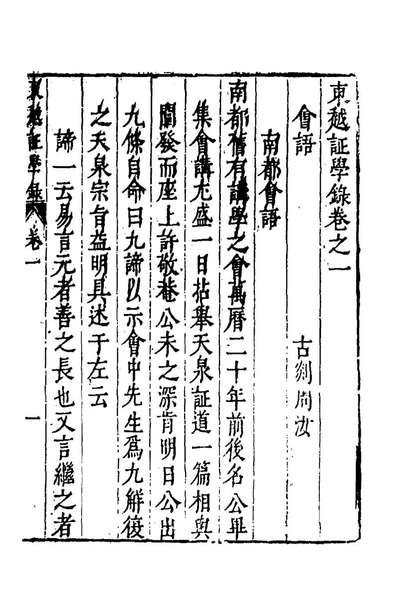 東越証學錄卷之一
會語 古剡周汝
南都會語
南都舊有講學之會萬曆二十年前後名公畢
集會講尤盛一日拈舉天泉証道一篇相與
闡發而座上許敬菴公未之深肯明日公出
九條自命曰九諦以示會中先生為九解復
之天泉宗旨益明具述于左云
諦一云易言元者善之長也又言繼之者
東越証學錄 卷一 一